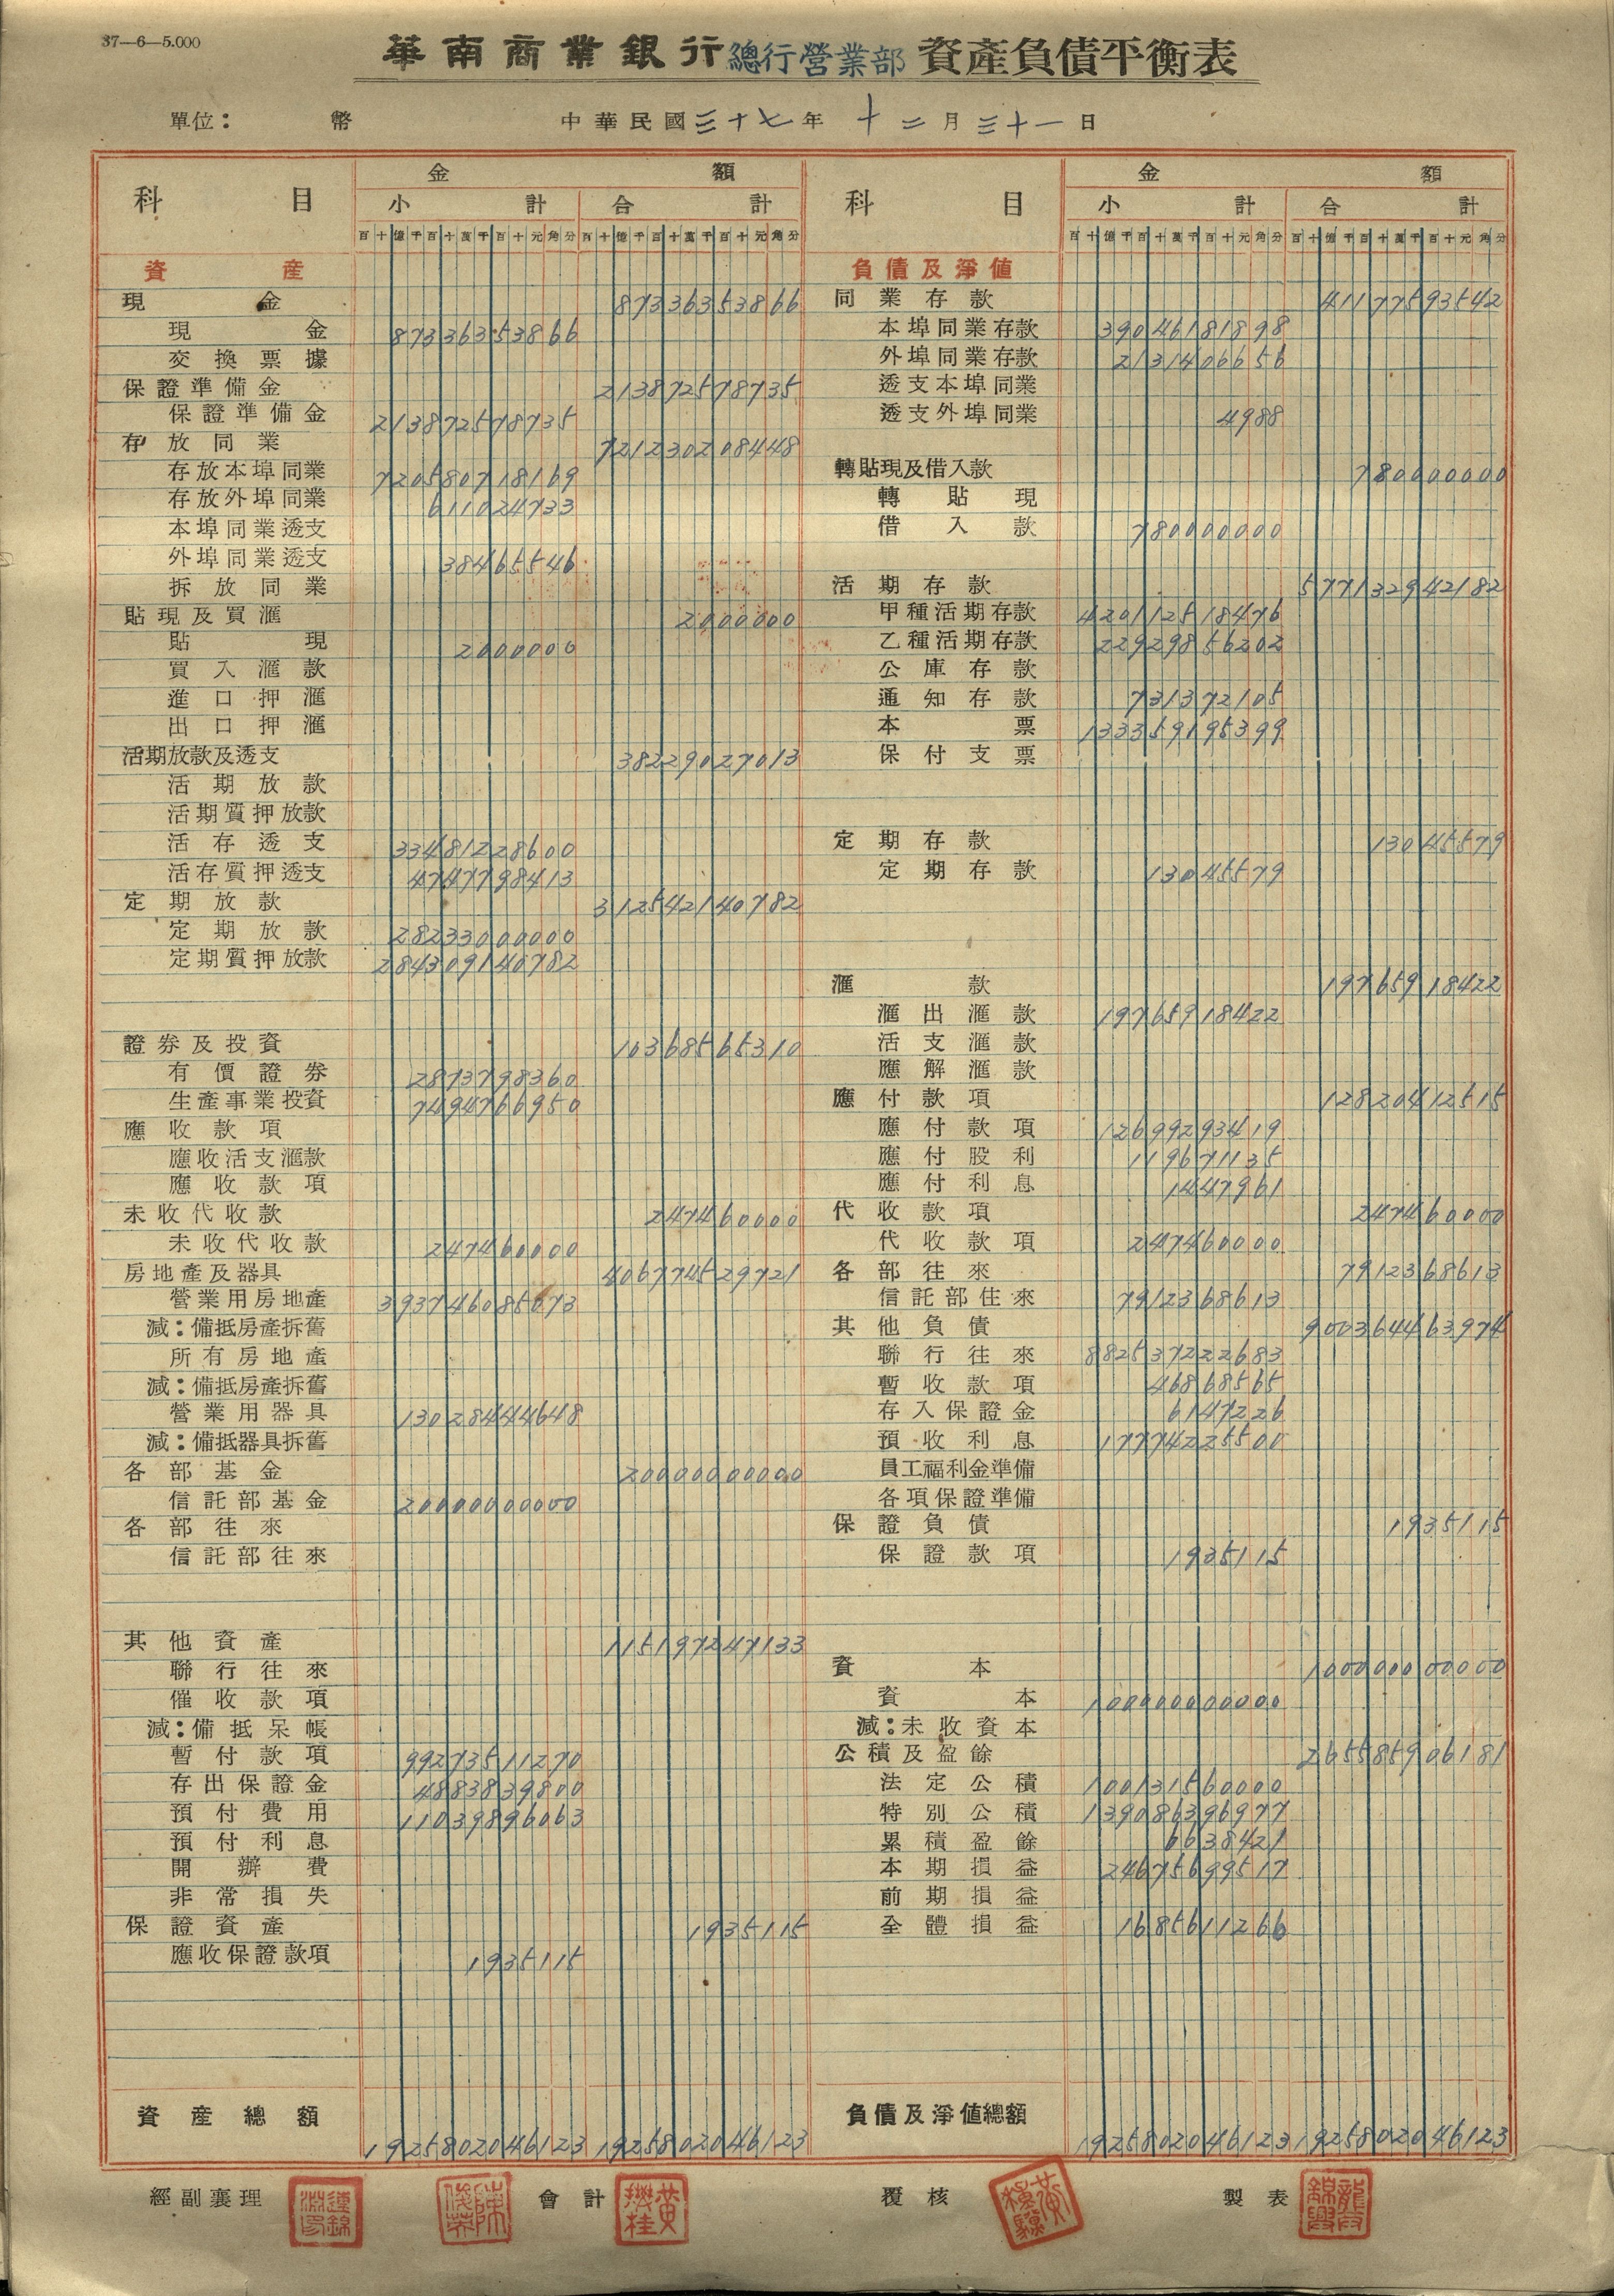 37—6—5.000
華南商業銀行總行營業部資產負債平衡表
單位: 幣 中華民國三十七年十二月三十一日
科目 金額 科目 金額
小計 合計 小計 合計
百十億千百十萬千百十元角分 百十億千百十萬千百十元角分 百十億千百十萬千百十元角分 百十億千百十萬千百十元角分
資產
現金 87336353866
現金 87336353866
交換票據
保證準備金 213872578735
保證準備金 213872578735
存放同業 721230208448
存放本埠同業 720580718169
存放外埠同業 611024733
本埠同業透支
外埠同業透支 38465546
拆放同業
貼現及買滙 2000000
貼現 2000000
買入滙款
進口押滙
出口押滙
活期放款及透支 38229027013
活期放款
活期質押放款
活存透支 33481228600
活存質押透支 4747798413
定期放款 312542140782
定期放款 28233000000
定期質押放款 284309140782
證券及投資 10368565310
有價證券 2873798360
生產事業投資 7494766950
應收款項
應收活支滙款
應收款項
未收代收款 247460000
未收代收款 247460000
房地產及器具 406774529721
營業用房地產 393746085073
減:備抵房產拆舊
所有房地產
減:備抵房產拆舊
營業用器具 13028444648
減:備抵器具拆舊
各部基金 20000000000
信託部基金 20000000000
各部往來
信託部往來
其他資產 115197247133
聯行往來
催收款項
減:備抵呆帳
暫付款項 99273511270
存出保證金 4883839800
預付費用 11039896063
預付利息
開辦費
非常損失
保證資產 1935115
應收保證款項 1935115
資產總額 1925802046123 1925802046123
負債及淨值
同業存款 41177593542
本埠同業存款 39046181898
外埠同業存款 2131406656
透支本埠同業
透支外埠同業 4988
轉貼現及借入款 780000000
轉貼現
借入款 780000000
活期存款 577132942182
甲種活期存款 420112518476
乙種活期存款 22929856202
公庫存款
通知存款 731372105
本票 133359195399
保付支票
定期存款 13045579
定期存款 13045579
滙款 19765918422
滙出滙款 19765918422
活支滙款
應解滙款
應付款項 12820412515
應付款項 12699293419
應付股利 119671135
應付利息 1447961
代收款項 247460000
代收款項 247460000
各部往來 7912368613
信託部往來 7912368613
其他負債 900364463974
聯行往來 882537222683
暫收款項 46868565
存入保證金 6147226
預收利息 17774225500
員工福利金準備
各項保證準備
保證負債 1935115
保證款項 1935115
資本 100000000000
資本 100000000000
減:未收資本
公積及盈餘 265585906181
法定公積 100131560000
特別公積 139086396977
累積盈餘 6638421
本期損益 24675699517
前期損益
全體損益 1685611266
負債及淨值總額 1925802046123 1925802046123
經副襄理 會計 覆核 製表